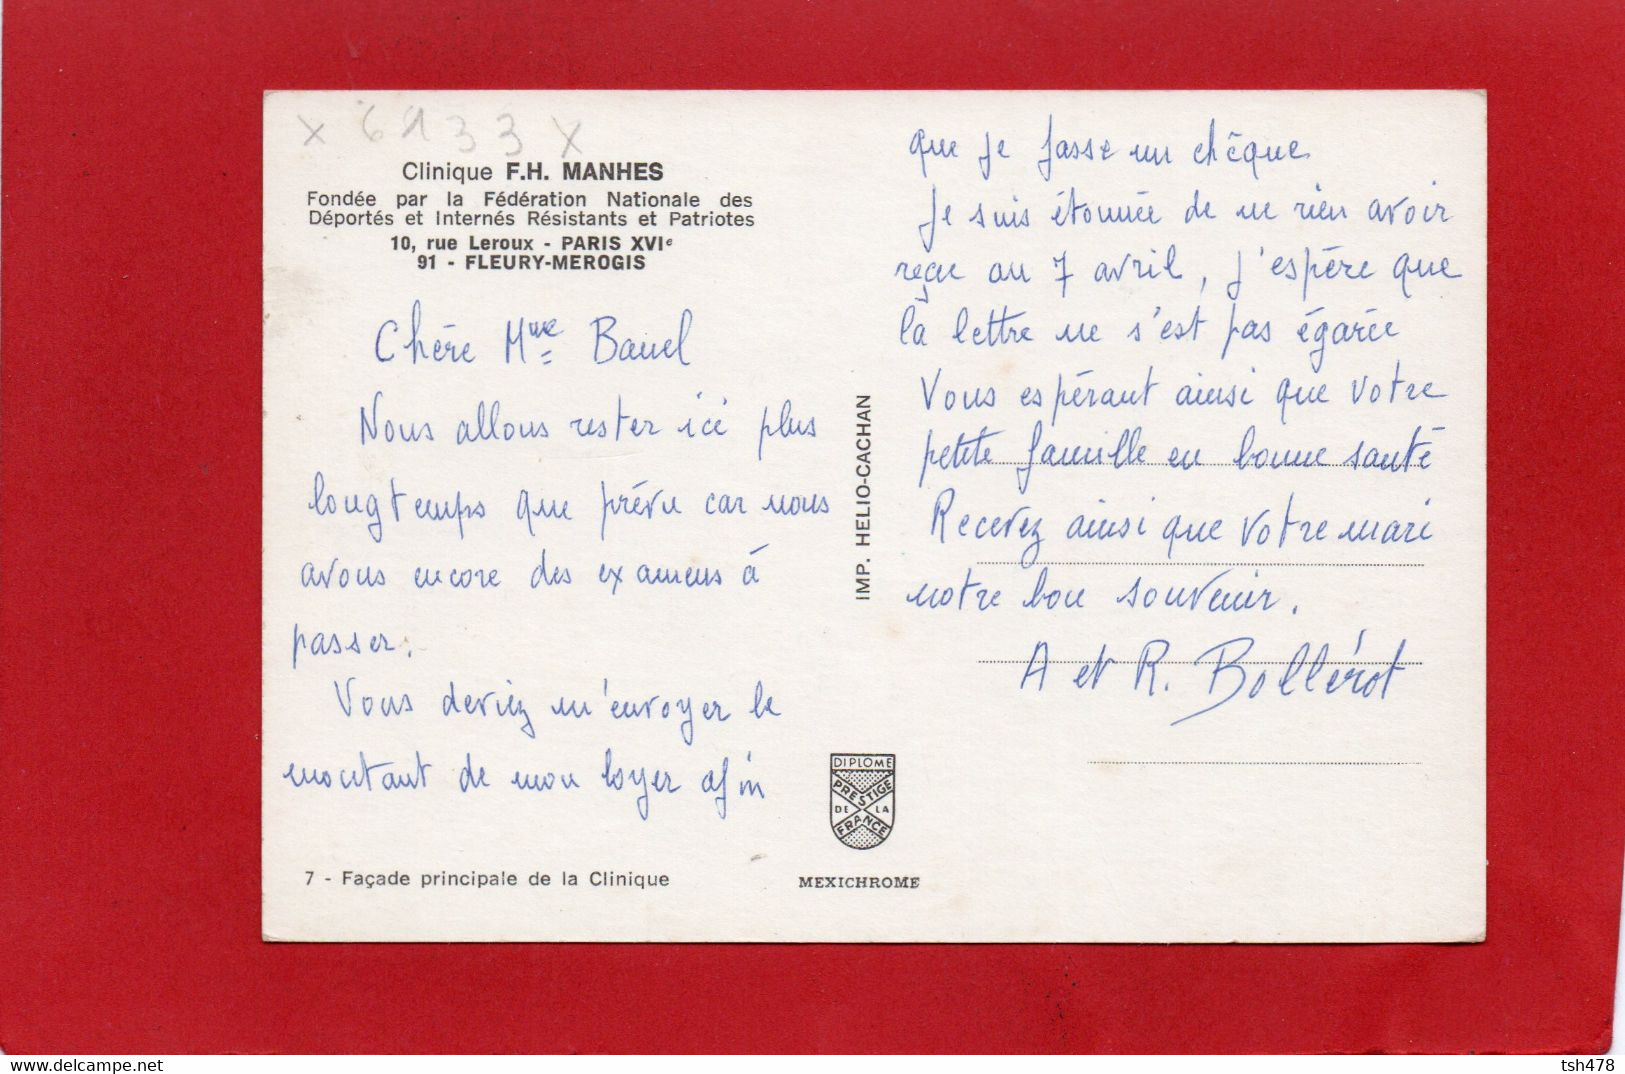 x 6933 x
Clinique F.H. MANHES
Fondée par la Fédération Nationale des
Déportés et Internés Résistants et Patriotes
10, rue Leroux - PARIS XVIe
91 - FLEURY-MEROGIS
Chère Mme Bauel
Nous allons rester ici plus
longtemps que prévu car nous
avons encore des examens à
passer.
Vous devriez m'envoyer le
montant de mon loyer afin
7 - Façade principale de la Clinique
IMP. HELIO-CACHAN
DIPLOME
PRESTIGE
DE LA
FRANCE
MEXICHROME
que je fasse un chèque
Je suis étonnée de ne rien avoir
reçu au 7 avril, j'espère que
la lettre ne s'est pas égarée
Vous espérant ainsi que votre
petite famille en bonne santé
Recevez ainsi que votre mari
notre bon souvenir.
A et R. Bollérot
tsh478